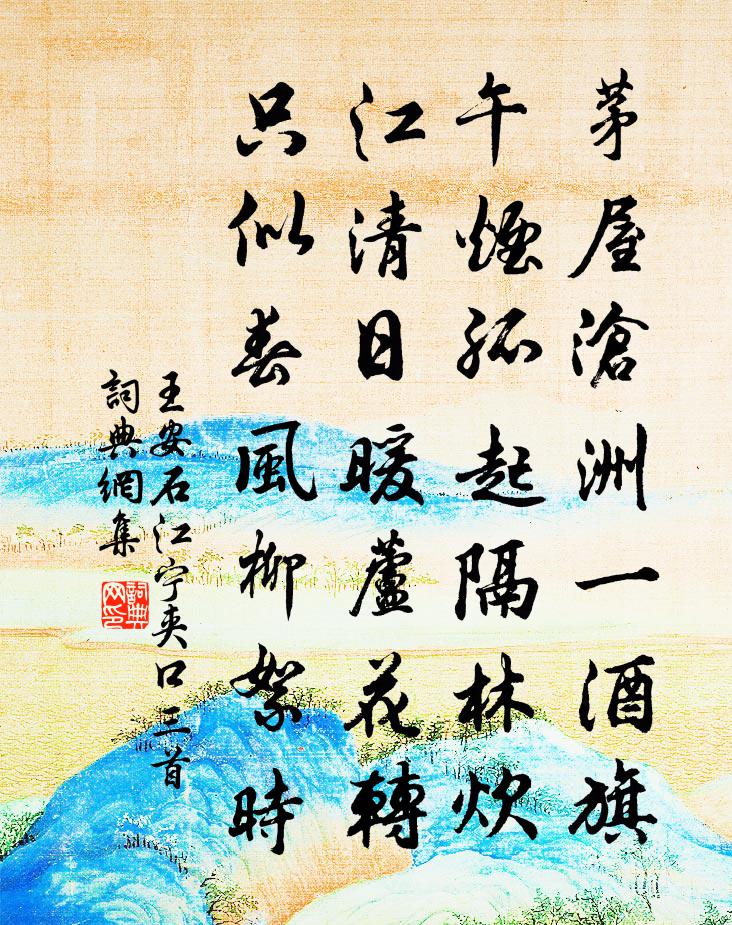 茅屋滄洲一酒旗
午煙孤起隔林炊
江清日暖蘆花轉
只似春風柳絮時
王安石江宁夾口三首
詞典網集
詞典